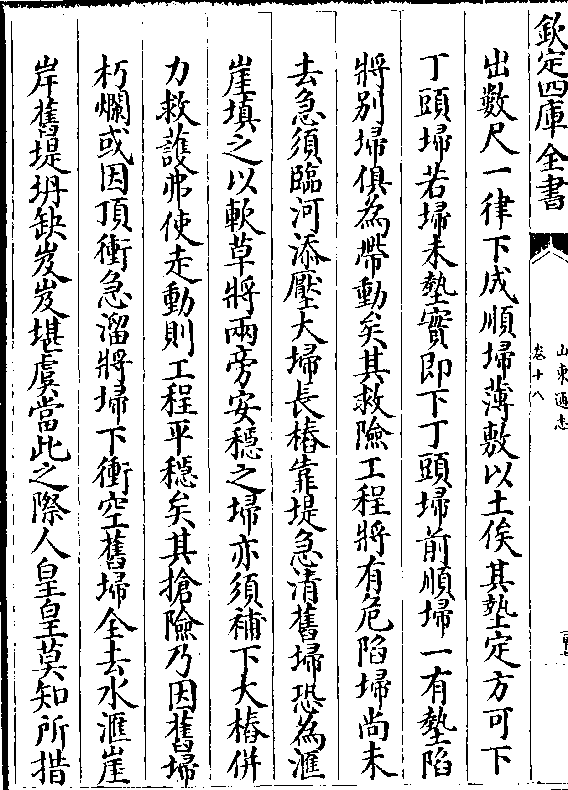 欽定四庫全書
山東通志
卷十八
出數尺一律下成順埽薄敷以土俟其墊定方可下
丁頭埽若埽未墊實即下丁頭埽前順埽一有墊陷
將別埽俱為帶動矣其救險工程將有危陷埽尚未
去急須臨河添壓大埽長樁靠堤急清舊埽恐為滙
崖填之以軟草將兩旁安穩之埽亦須補下大樁併
力救護弗使走動則工程平穩矣其搶險乃因舊埽
朽爛或因頂衝急溜將埽下衝空舊埽全去水滙崖
岸舊堤坍缺岌岌堪虞當此之際人皇皇莫知所措